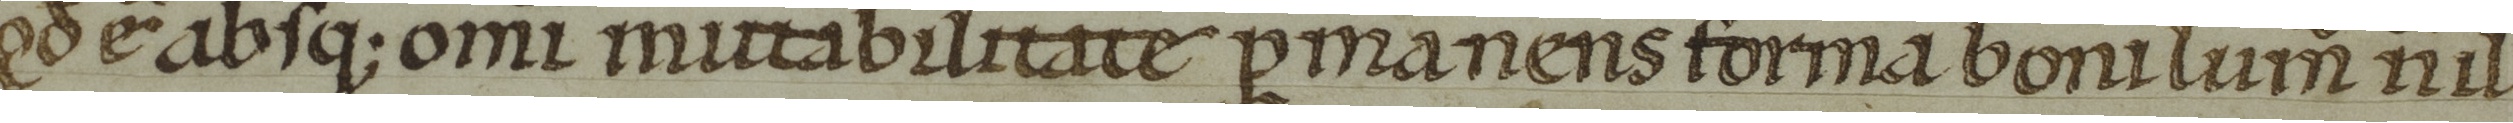 qd ē absq; omi mutabilitate ꝑmanens forma boni lum̄ nil